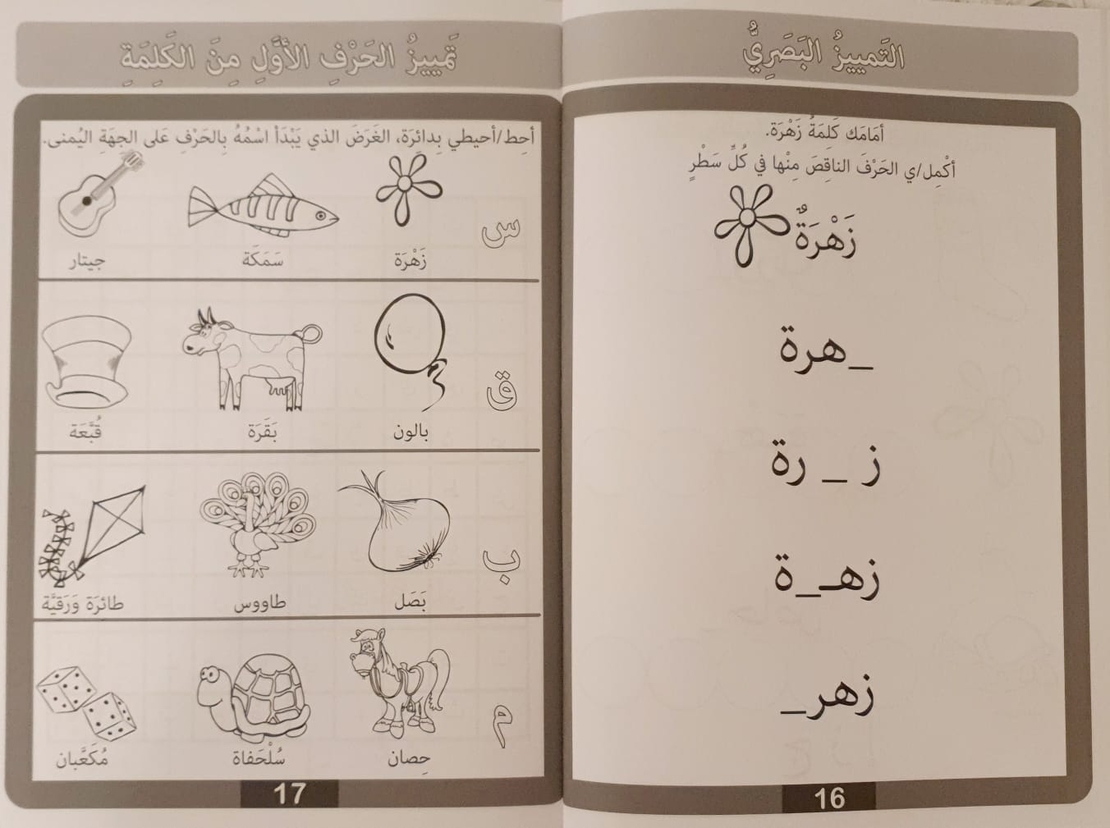 التَّمييزُ البَصَرِيُّ
أمَامَك كَلِمَةُ زَهْرَة.
أكْمِل/ي الحَرْفَ الناقِصَ مِنْها في كُلِّ سَطْرٍ
زَهْرَةٌ
_هرة
ز _ رة
زهـ_ة
زهر_
16
تَمييزُ الحَرْفِ الأَوَّلِ مِنَ الكَلِمَةِ
أحِط/أحيطي بِدائِرَة، الغَرَضَ الذي يَبْدَأ اسْمُهُ بِالحَرْفِ عَلى الجِهَةِ اليُمنى.
س
زَهْرَة سَمَكَة جيتار
ق
بالون بَقَرَة قُبَّعَة
ب
بَصَل طاووس طائرَة وَرَقيَّة
م
حِصان سُلْحَفاة مُكَعَّبان
17